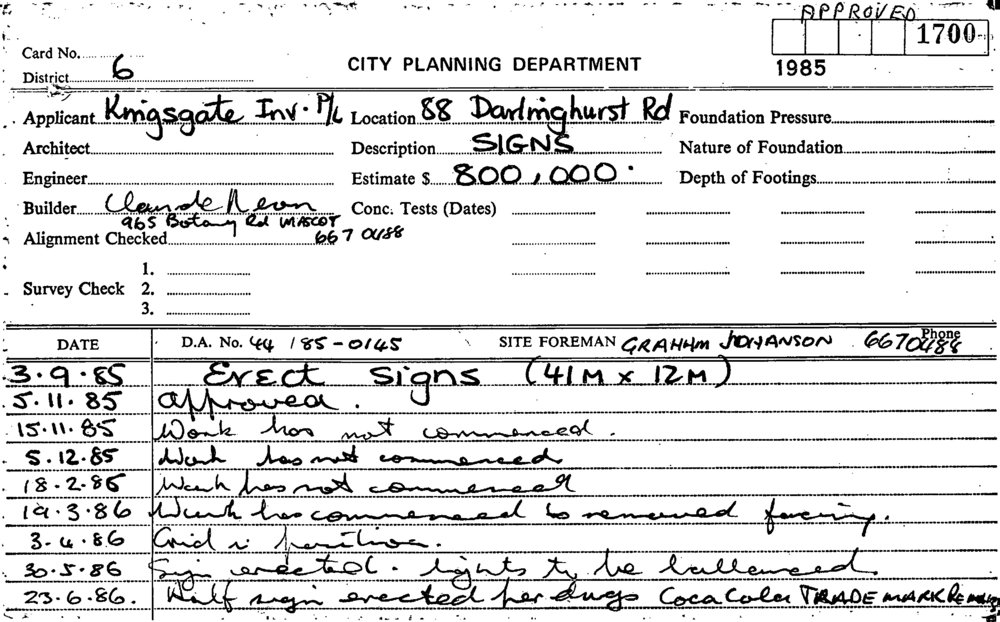 APPROVED
Card No.
1700
District 6
CITY PLANNING DEPARTMENT
1985
Applicant Kingsgate Inv. P/L Location 88 Darlinghurst Rd Foundation Pressure
Architect Description SIGNS Nature of Foundation
Engineer Estimate $ 800,000. Depth of Footings
Builder Claude Neon Conc. Tests (Dates)
965 Botany Rd MASCOT
Alignment Checked 667 0488
1.
Survey Check 2.
3.
DATE D.A. No. 44 /85-0145 SITE FOREMAN GRAHAM JOHANSON Phone 6670488
3.9.85 Erect Signs (41M x 12M)
5.11.85 approved.
15.11.85 Work has not commenced.
5.12.85 Work has not commenced
18.2.86 Work has not commenced
19.3.86 Work has commenced to removed facing.
3.4.86 Grid in position.
30.5.86 Sign erected. lights to be ballanced.
23.6.86. Half sign erected per dwgs Coca Cola TRADE MARK